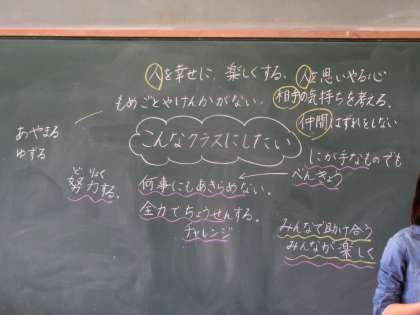 人を幸せに、楽しくする。
人を思いやる心
もめごとやけんかがない。
相手の気持ちを考える。
仲間はずれをしない
あやまる
ゆずる
こんなクラスにしたい
にが手なものでも
べんきょう
どりょく
努力する。
何事にもあきらめない。
全力でちょうせんする。
チャレンジ
みんなで助け合う
みんなが楽しく